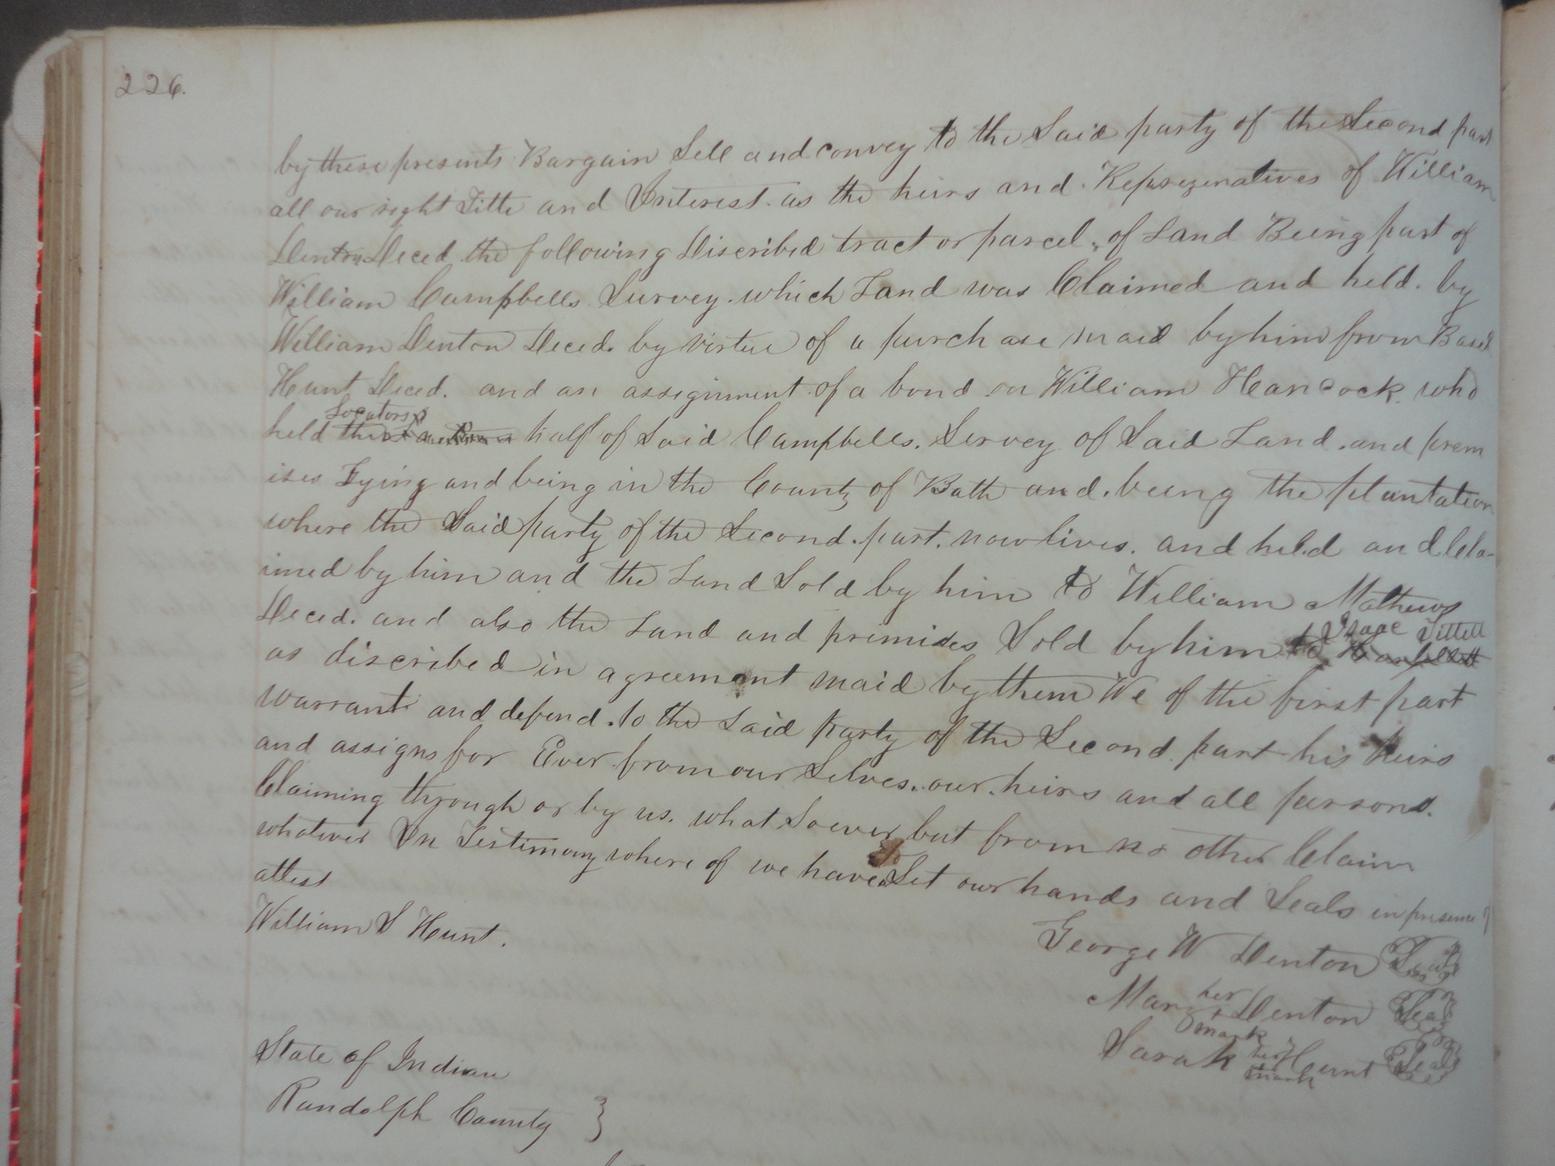 226.
by these presents Bargain Sell and convey to the Said party of the Second part
all our right Title and Interest as the heirs and Represenatives of William
Denton Deced the following Discribed tract or parcel, of Land Being part of
William Campbells Survey. which Land was Claimed and held. by
William Denton Deced. by virtue of a purchase maid by him from Basil
Hunt Deced. and an assignment of a bond on William Hancock who
Locators
held half of Said Campbells. Servey of Said Land. and prem
ises Lying and being in the County of Bath and. being the plantation
where the Said party of the Second. part. now lives. and held and Cla-
imed by him and the Land Sold by him to William Mathews
Deced. and also the Land and premises Sold by him to Isaac Tittell
as discribed in agreement maid by them We of the first part
warrant and defend. to the Said party of the Second part his heirs
and assigns for Ever from our Selves. our. heirs and all persons.
Claiming through or by us. what Soever but from no other Claim
whatever In Testimony where of we have Set our hands and Seals in presence of
attest
William S Hunt.
George W Denton Seal
Mary her mark Denton Seal
Sarah her mark Hunt Seal
State of Indian
Randolph County }